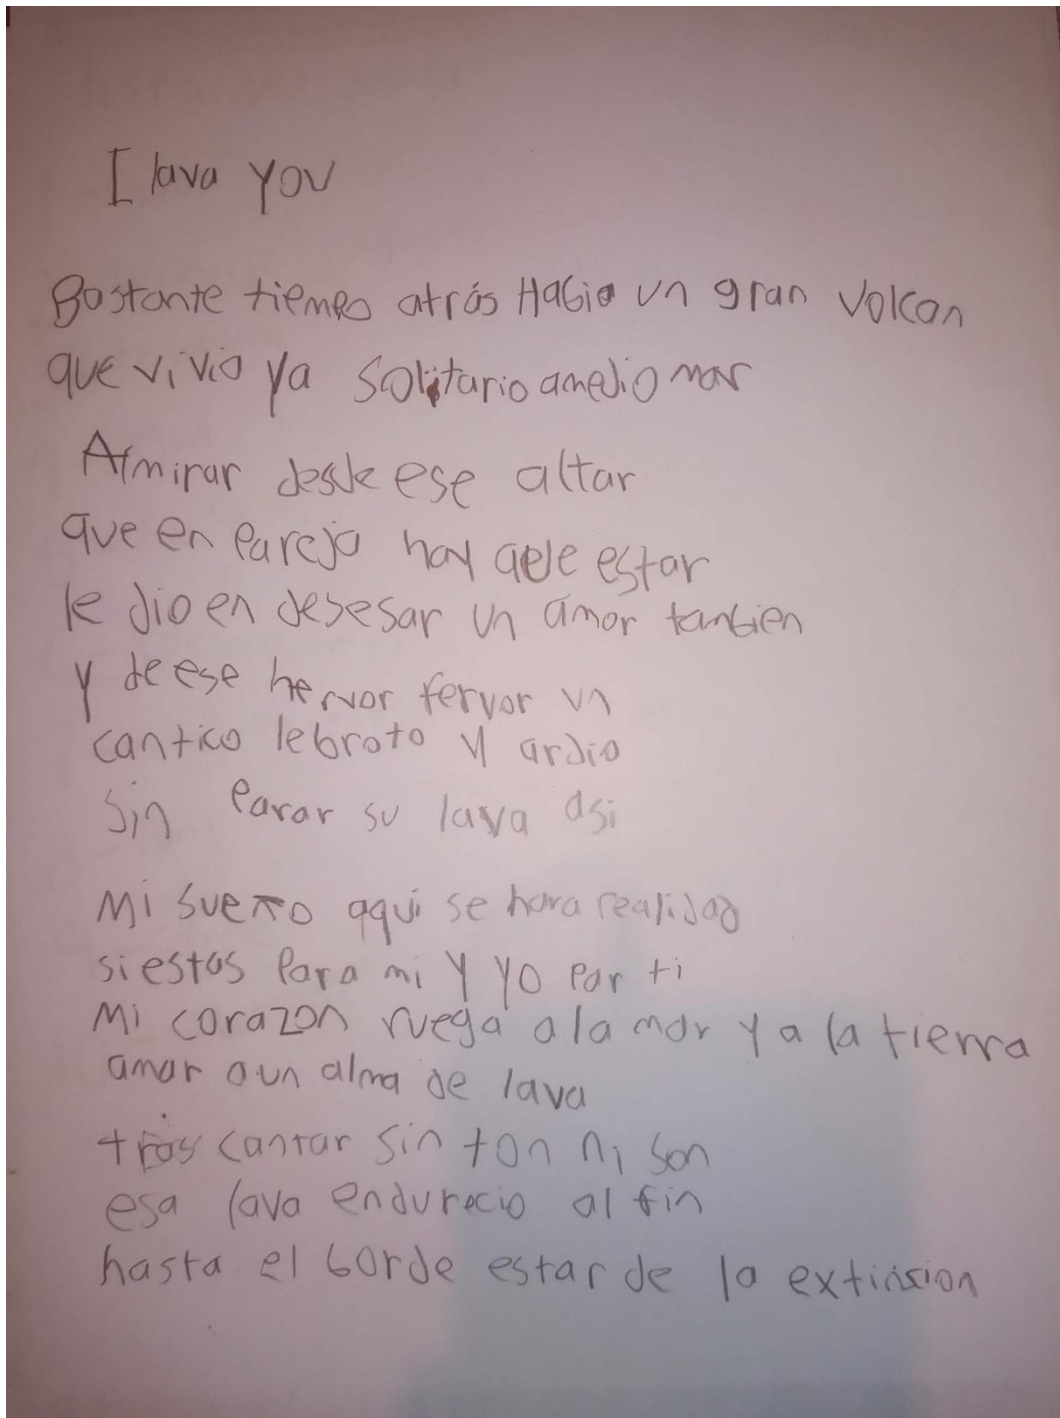 I lava you
Bastante tiempo atrás Habia un gran volcan
que vivio ya solitario amedio mar
Almirar desde ese altar
que en pareja hay que estar
le dio en desesar un amor tanbien
y de ese hervor fervor un
cantico lebroto y ardio
Sin parar su lava asi
Mi sueño aqui se hara realidad
si estas para mi y yo por ti
Mi corazon ruega a la mar y a la tierra
amar aun alma de lava
trás cantar sin ton ni son
esa lava endurecio al fin
hasta el borde estar de la extinsion